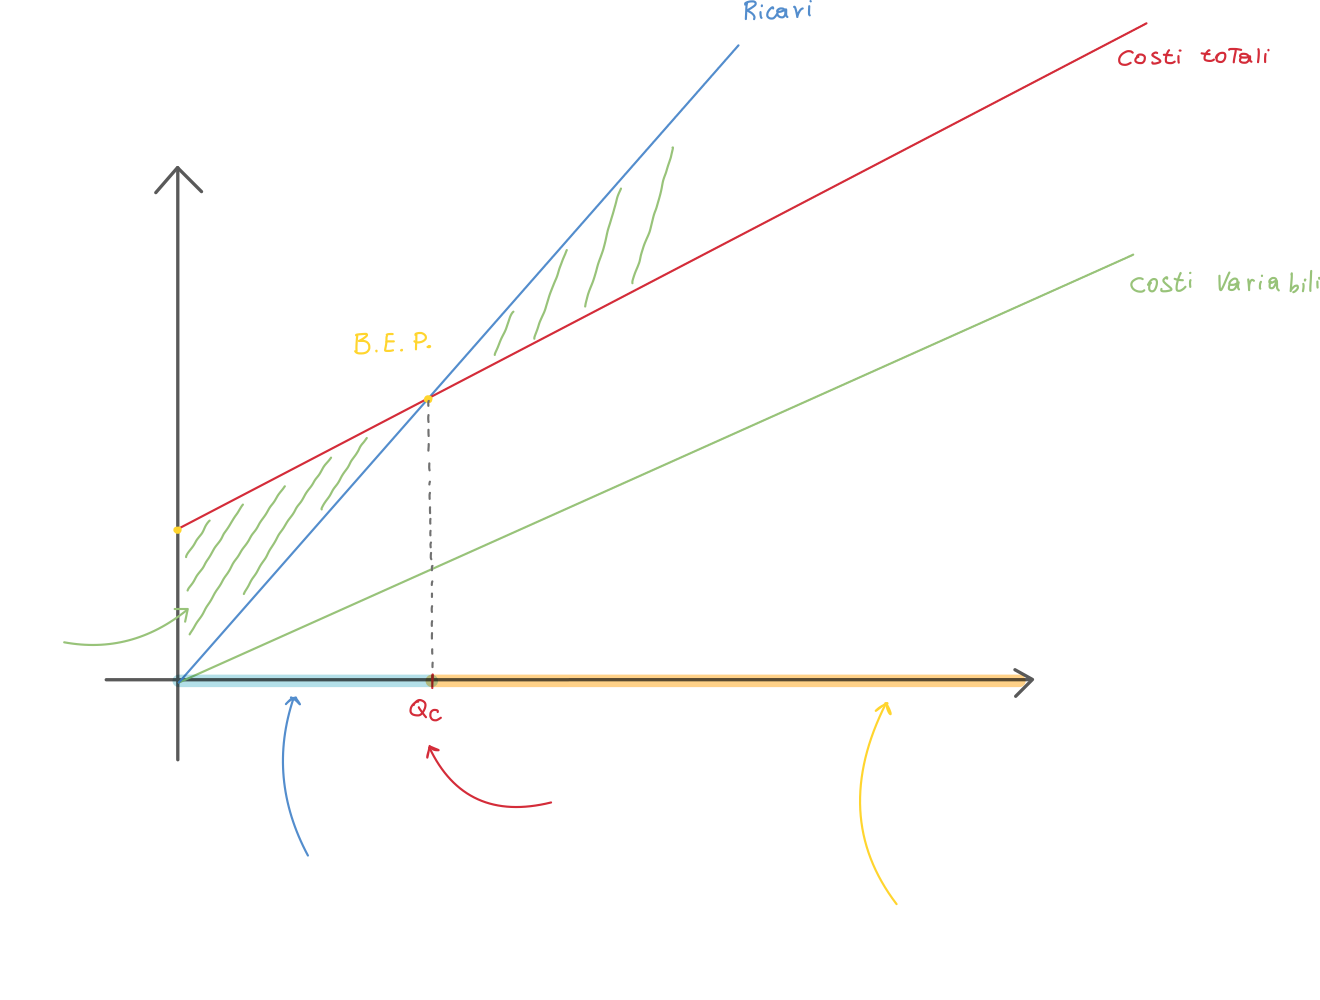 Ricavi
Costi toTali
Costi Variabili
B.E.P.
Qc